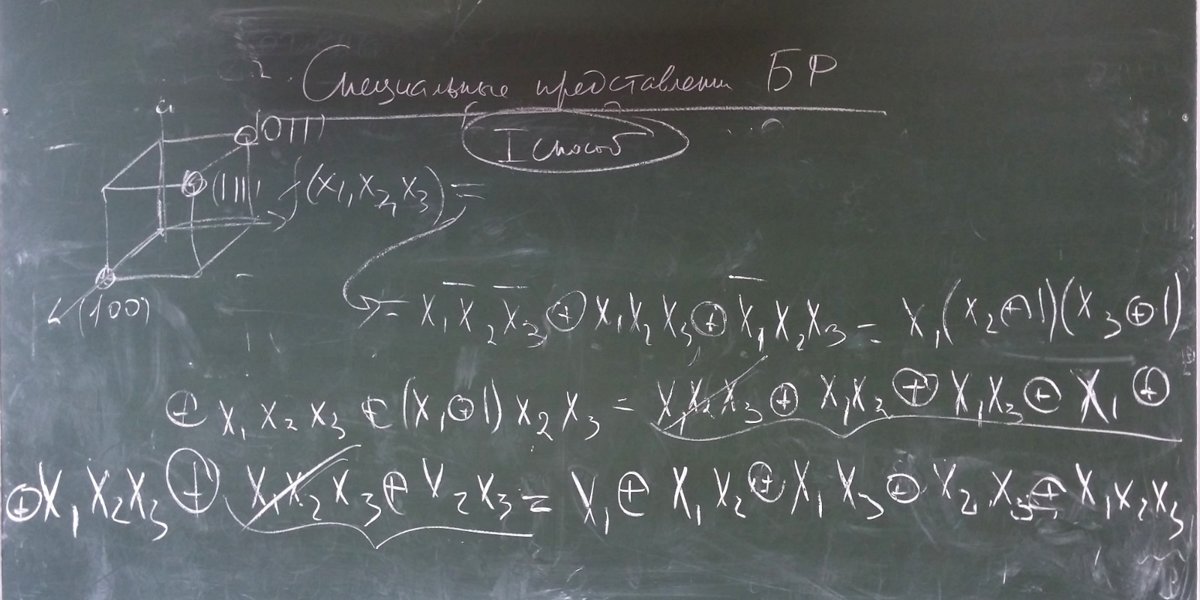 Специальные представлени БР
I способ
(011)
(111) f(x₁, x₂, x₃) =
(100)
= x₁x̅₂x̅₃ ⊕ x₁x₂x₃ ⊕ x̅₁x₂x₃ = x₁(x₂⊕1)(x₃⊕1)
⊕ x₁x₂x₃ ⊕ (x₁⊕1)x₂x₃ = x₁x₂x₃ ⊕ x₁x₂ ⊕ x₁x₃ ⊕ x₁ ⊕
⊕ x₁x₂x₃ ⊕ x₁x₂x₃ ⊕ x₂x₃ = x₁ ⊕ x₁x₂ ⊕ x₁x₃ ⊕ x₂x₃ ⊕ x₁x₂x₃